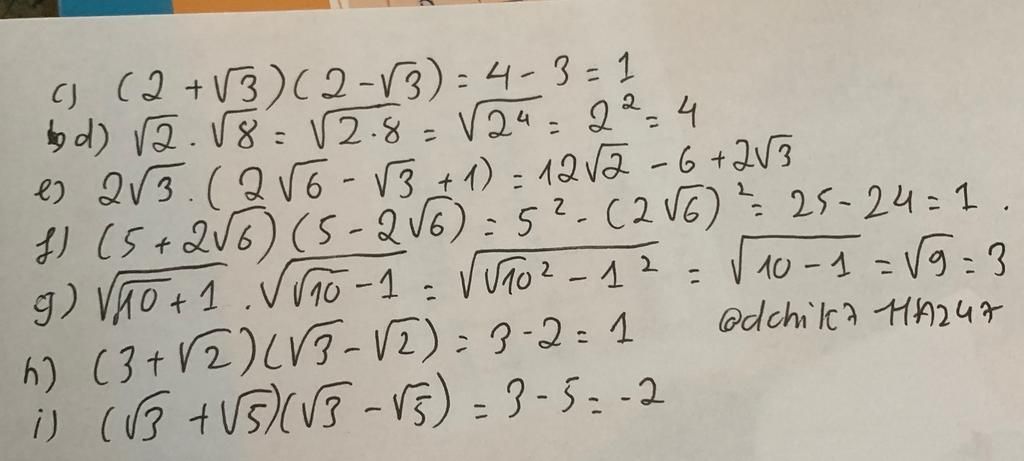 c) (2 + √3)(2 - √3) = 4 - 3 = 1
d) √2 . √8 = √2.8 = √2⁴ = 2² = 4
e) 2√3 . (2√6 - √3 + 1) = 12√2 - 6 + 2√3
f) (5 + 2√6)(5 - 2√6) = 5² - (2√6)² = 25 - 24 = 1 .
g) √(√10 + 1) . √(√10 - 1) = √(√10² - 1²) = √(10 - 1) = √9 = 3
h) (3 + √2)(√3 - √2) = 3 - 2 = 1
i) (√3 + √5)(√3 - √5) = 3 - 5 = -2